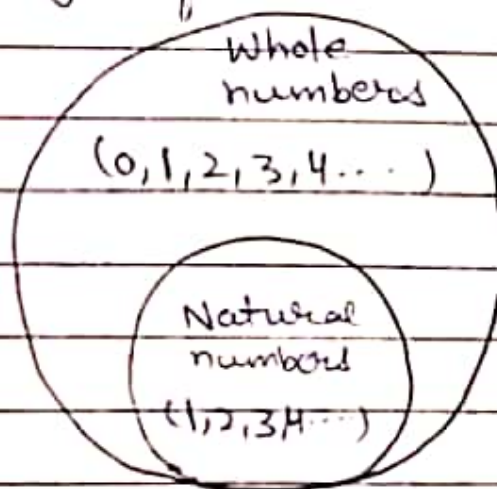 Whole
numbers
(0,1,2,3,4....)
Natural
numbers
(1,2,3,4....)